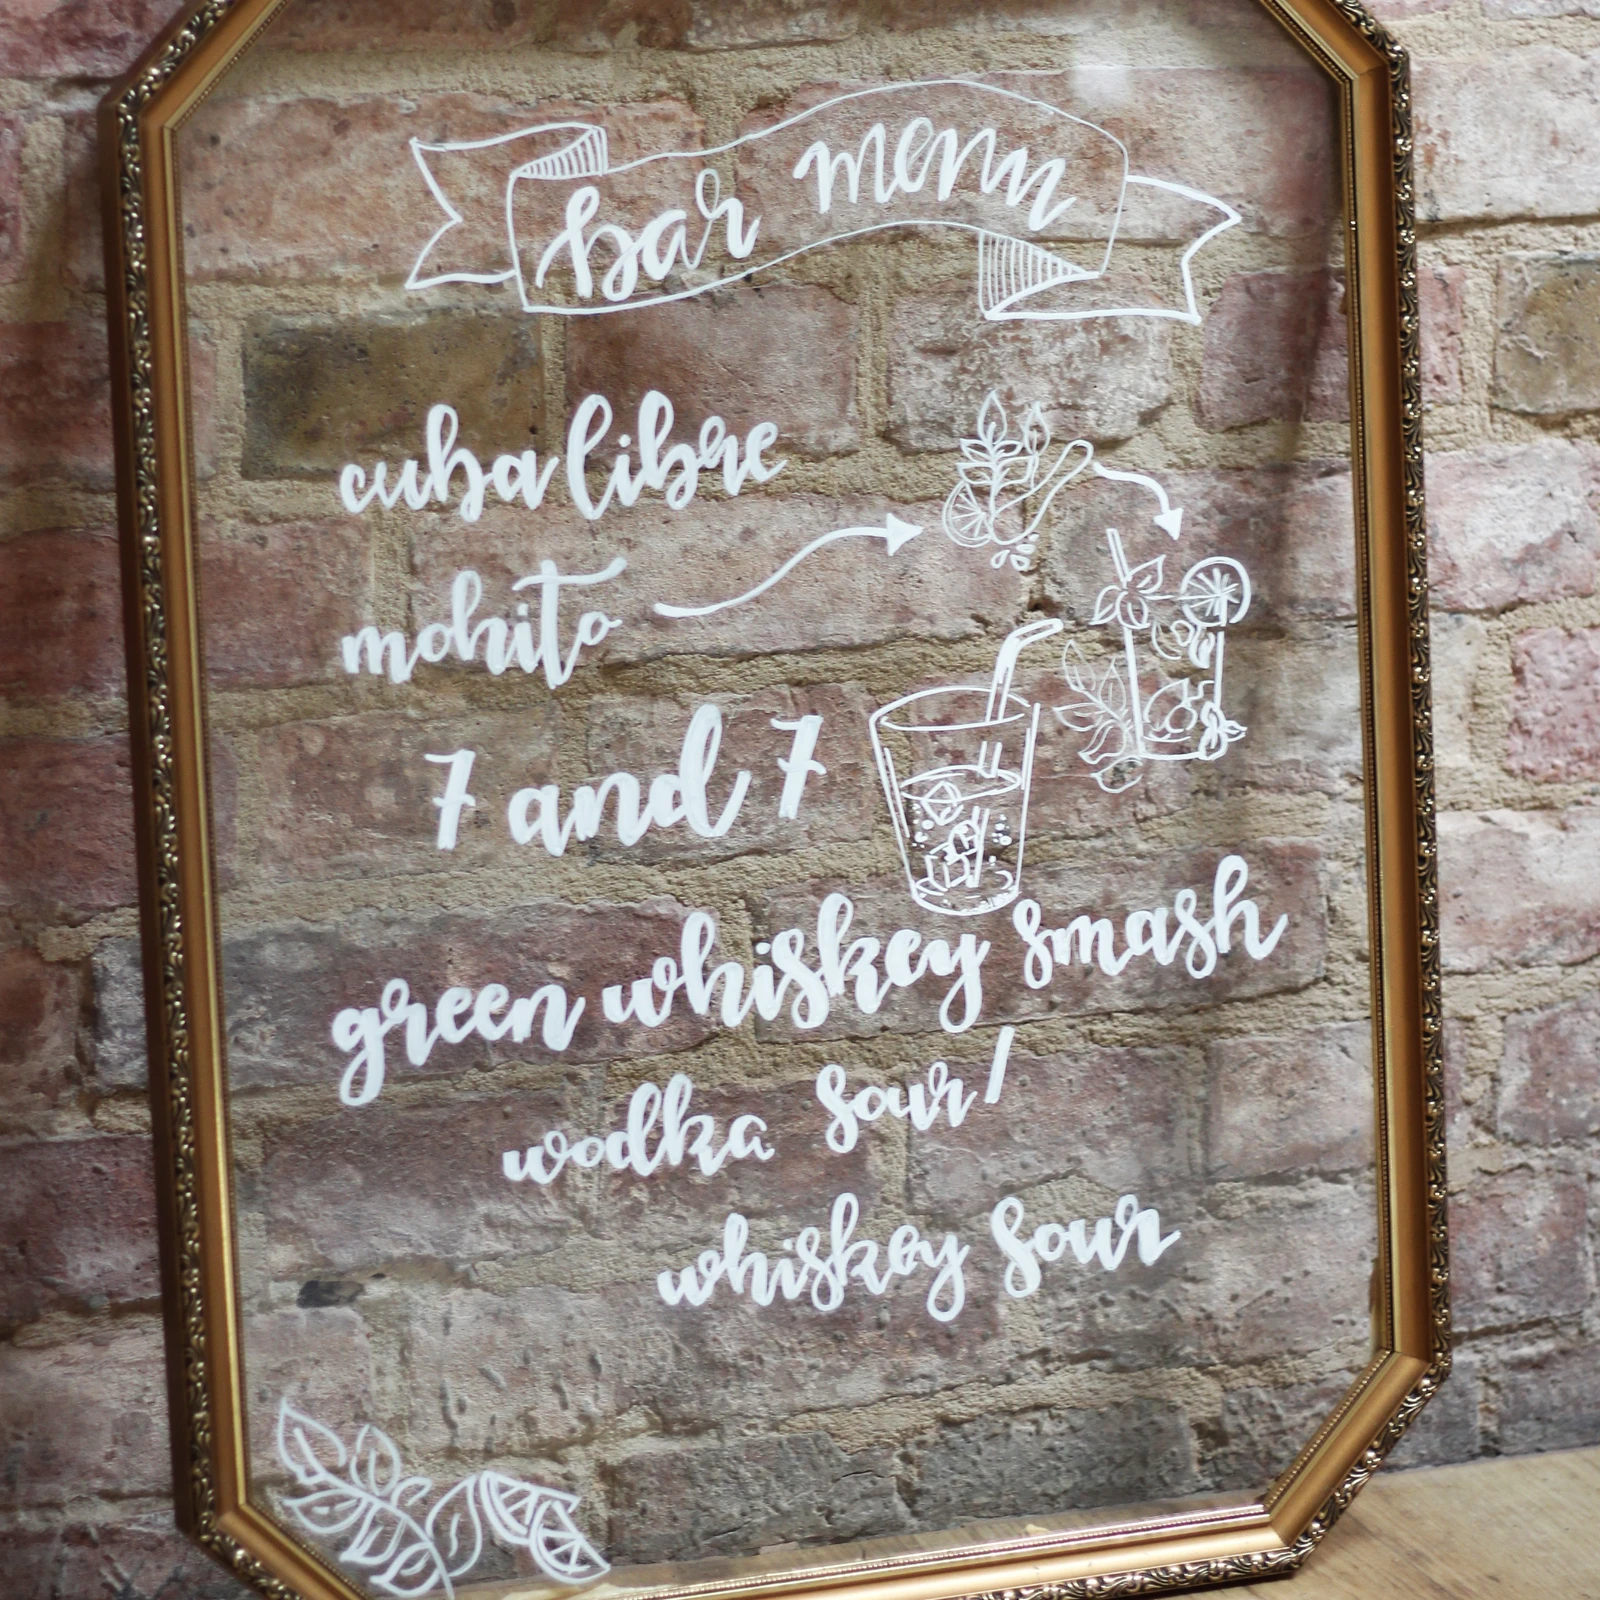 bar menu
cuba libre
mohito
7 and 7
green whiskey smash
wodka sour/
whiskey sour